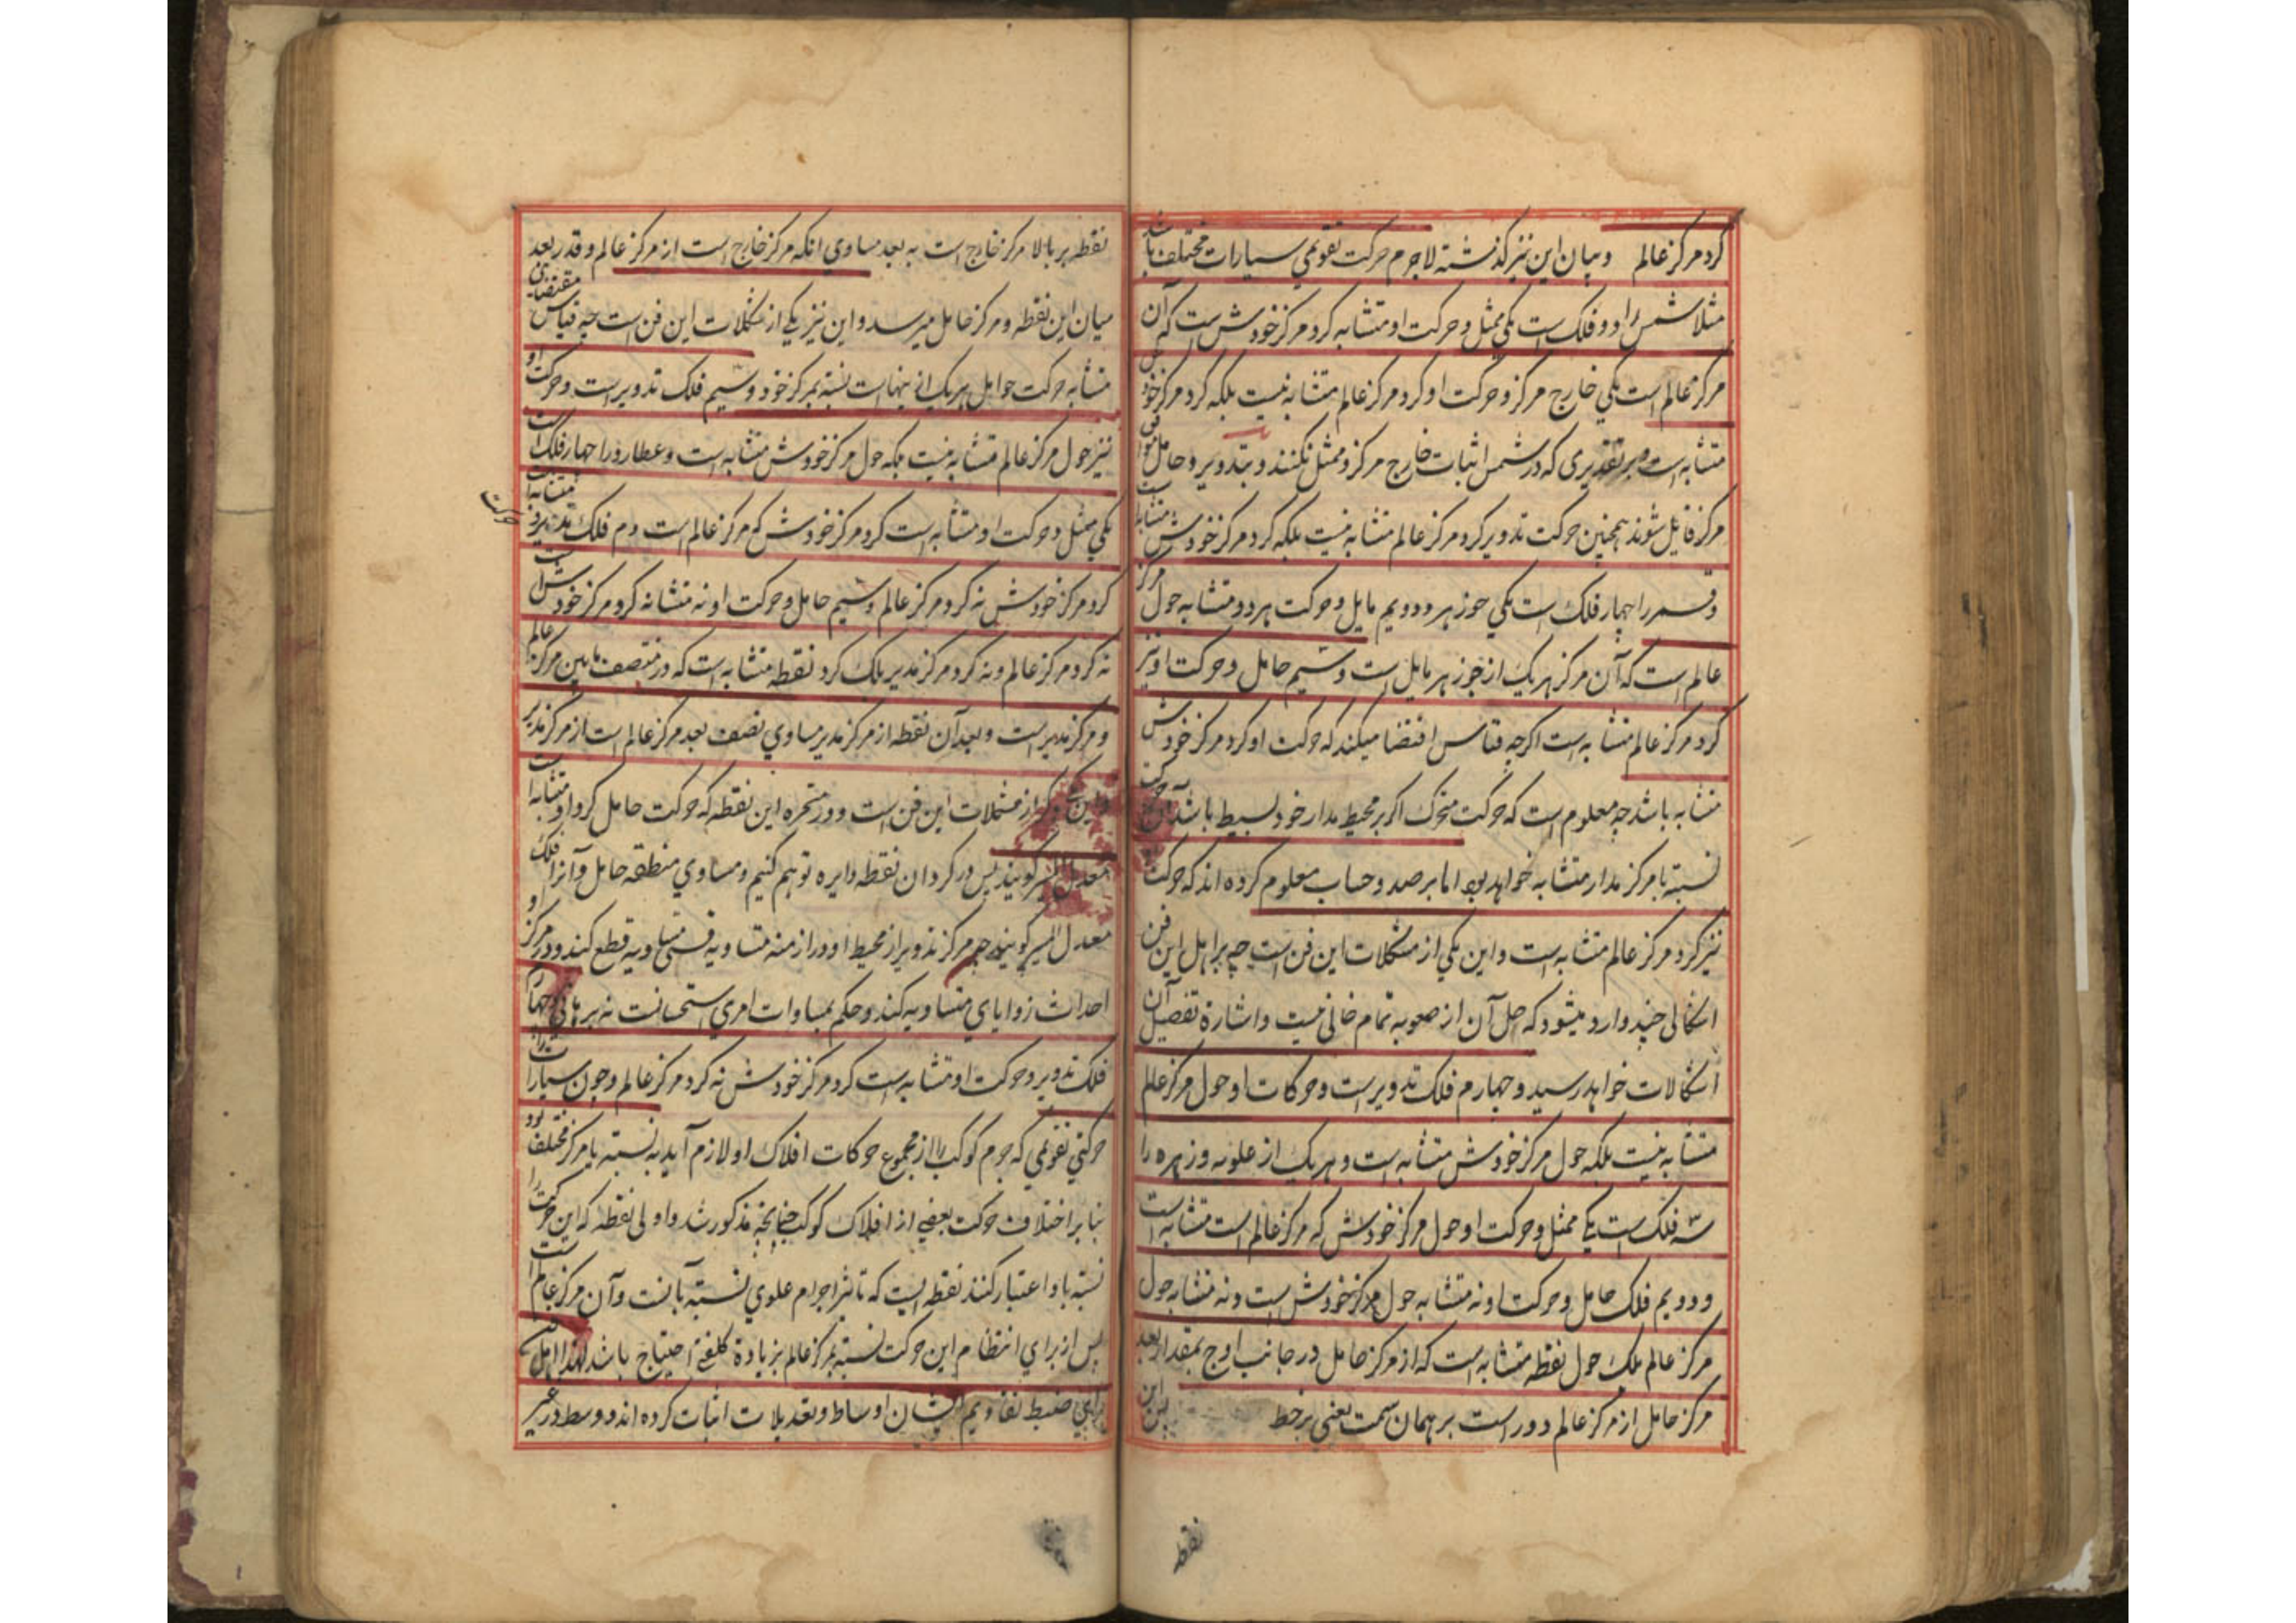 کرد مرکز عالم و بیان این نیز گذشته لاجرم حرکت تقویمی سیارات مختلف باشد
مثلا شمس را دو فلک است یکی ممثل و حرکت او متشابه کرد مرکز خودش است که آن
مرکز عالم است یکی خارج مرکز و حرکت او کرد مرکز عالم متشابه نیست بلکه کرد مرکز خود
متشابه است و بر تقدیری که در شمس اثبات خارج مرکز و ممثل نکنند و بتدویر و حامل موافق
مرکز قایل شوند همچنین حرکت تدویر کرد مرکز عالم متشابه نیست بلکه کرد مرکز خودش متشابه است
و قمر را چهار فلک است یکی جوزهر و دویم مایل و حرکت هر دو متشابه حول مرکز
عالم است که آن مرکز هر یک از جوزهر مایل است و سیم حامل و حرکت او نیز
کرد مرکز عالم متشابه است اگرچه قیاس اقتضا میکند که حرکت او کرد مرکز خودش
متشابه باشد چه معلوم است که حرکت متحرک اگر بر محیط مدار خود بسیط باشد آن حرکت
نسبة با مرکز مدار متشابه خواهد بود اما برصد و حساب معلوم کرده اند که حرکت
نیز کرد مرکز عالم متشابه است و این یکی از مشکلات این فن است چه بر اهل این فن
اشکالی چند وارد میشود که حل آن از صعوبه تمام خالی نیست و اشارة تفصیل آن
اشکالات خواهد رسید و چهارم فلک تدویر است و حرکات او حول مرکز عالم
متشابه نیست بلکه حول مرکز خودش متشابه است و هر یک از علویه و زهره را
سه فلک است یکی ممثل و حرکت او حول مرکز خودش که مرکز عالم است متشابه است
و دویم فلک حامل و حرکت او نه متشابه حول مرکز خودش است و نه متشابه حول
مرکز عالم بلک حول نقطه متشابه است که از مرکز حامل در جانب اوج بمقدار بعد
مرکز حامل از مرکز عالم دور است بر همان سمت یعنی بر خط
نقطه
نقطه بر بالا مرکز خارج است به بعد مساوی انکه مرکز خارج است از مرکز عالم و قدر بعد
میان این نقطه و مرکز حامل میرسد و این نیز یکی از مشکلات این فن است چه قیاس مقتضای
متشابه حرکت حوامل هر یک از اینهاست نسبة بمرکز خود و سیم فلک تدویر است و حرکت او
نیز حول مرکز عالم متشابه نیست بلکه حول مرکز خودش متشابه است و عطارد را چهار فلک است
یکی ممثل و حرکت او متشابه است کرد مرکز خودش که مرکز عالم است دوم فلک مدیر و حرکت متشابه است
کرد مرکز خودش نه کرد مرکز عالم و سیم حامل و حرکت او نه متشابه کرد مرکز خودش است
نه کرد مرکز عالم و نه کرد مرکز مدیر بلک کرد نقطه متشابه است که در منتصف مابین مرکز عالم
و مرکز مدیر است و بعد آن نقطه از مرکز مدیر مساوی نصف بعد مرکز عالم است از مرکز مدیر
و این یکی دیگر از مشکلات این فن است و در متحیره این نقطه که حرکت حامل کرد او متشابه است
معدل المسیر گویند پس در کرد آن نقطه دایره توهم کنیم و مساوی منطقه حامل و آنرا فلک
معدل المسیر گویند چه مرکز تدویر از محیط او در ازمنه متساویه قسی متساویه قطع کند و در مرکز او
احداث زوایای متساویه کند و حکم بمساوات امری استحسانیست نه برهانی و چهارم
فلک تدویر و حرکت او متشابه است کرد مرکز خودش نه کرد مرکز عالم و چون سیارات را
حرکتی تقویمی که جرم کوکب را از مجموع حرکات افلاک او لازم آید به نسبته با مرکز مختلف بود
بنا بر اختلاف حرکت بعضی از افلاک کوکب چنانچه مذکور شد و اولی نقطه که این حرکت را
نسبة باو اعتبار کنند نقطه ایست که تاثیر اجرام علوی نسبة بآنست و آن مرکز عالم است
پس از برای انتظام این حرکت نسبة بمرکز عالم بزیادة کلفتی احتیاج باشد لهذا اهل فن
برای ضبط تقاویم ایشان اوساط و تعدیلات اثبات کرده اند و وسط در غیر